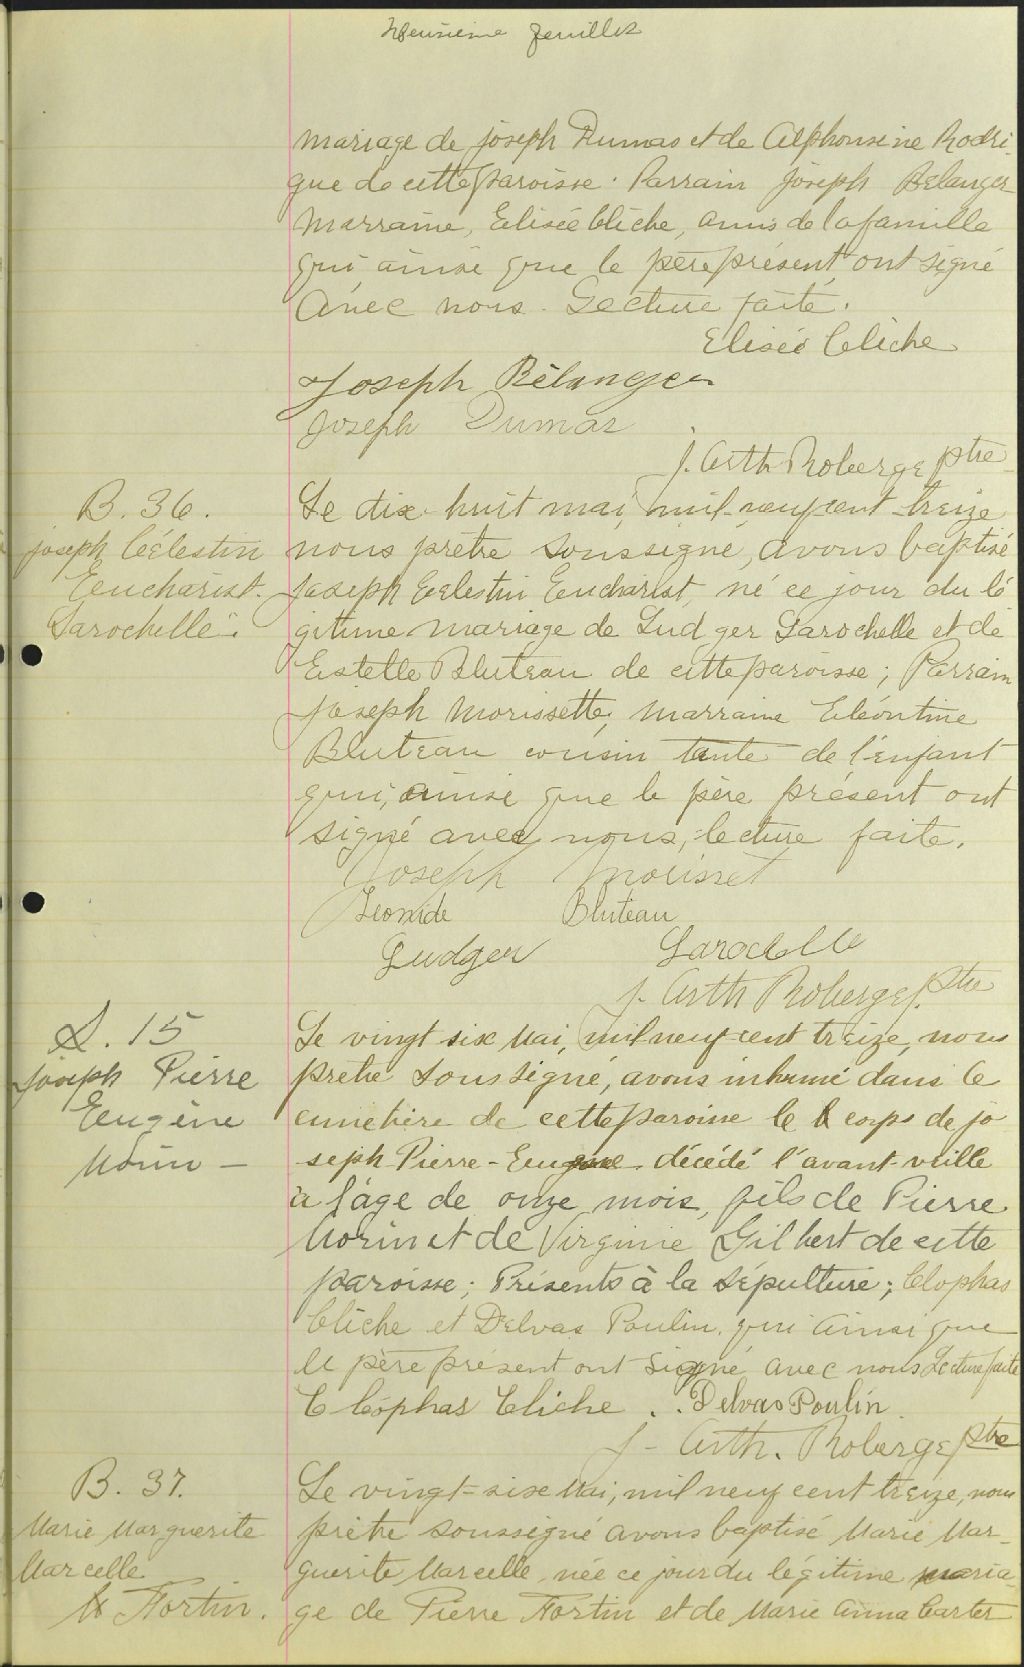 feuillet
mariage de joseph Dumas et de Alphonsine Rodri-
gue de cette paroisse. Parrain joseph Belanger
Marraine, Elisée Cliche, amis de la famille
qui ainsi que le père présent ont signé
Avec nous. Lecture faite.
Elisée Cliche
Joseph Bélanger
Joseph Dumas
J. Arth Roberge ptre
B. 36.
joseph Célestin
Eucharist.
Larochelle.
Le dix-huit mai, mil-neuf-cent-treize
nous prêtre soussigné, avons baptisé
Joseph Celestin Eucharist, né ce jour du lé
gitime mariage de Ludger Larochelle et de
Estelle Bluteau de cette paroisse; Parrain
Joseph Morissette, Marraine Eléontine
Bluteau cousin tante de l'enfant
qui, ainsi que le père présent ont
signé avec nous, lecture faite.
Joseph Morisset
Leonide Bluteau
Ludger Larochelle
J. Arth Roberge Ptre
S. 15
Joseph Pierre
Eugène
Morin -
Le vingt six Mai, mil neuf cent treize, nous
prêtre soussigné, avons inhumé dans le
cimetière de cette paroisse le corps de jo
seph Pierre-Eugène décédé l'avant-veille
à l'âge de onze mois, fils de Pierre
Morin et de Virginie Gilbert de cette
paroisse; Présents à la sépulture; Clophas
Cliche et Delvas Poulin. qui ainsi que
le père présent ont signé avec nous Lecture faite
Cléophas Cliche . . Delvas Poulin
J- Arth. Roberge ptre
B. 37.
Marie Marguerite
Marcelle
Fortin.
Le vingt-six Mai, mil neuf cent treize, nous
prêtre soussigné avons baptisé Marie Mar-
guerite Marcelle née ce jour du légitime maria-
ge de Pierre Fortin et de Marie Anna Carter